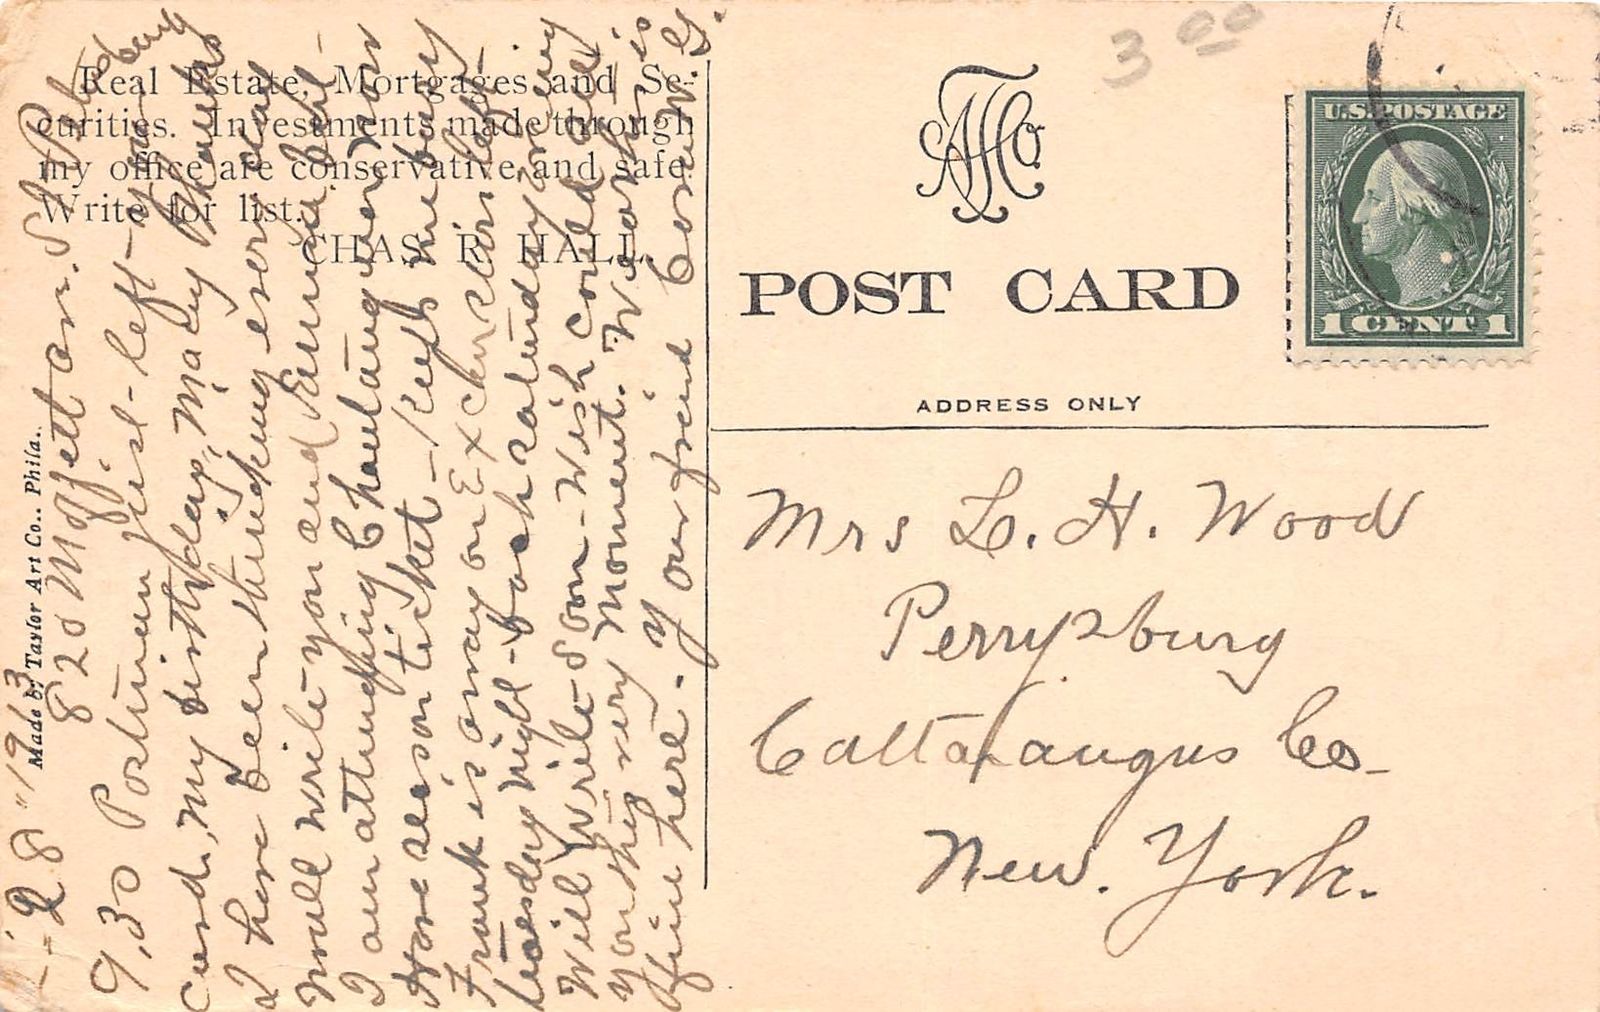 Real Estate, Mortgages and Se-
curities. Investments made through
my office are conservative and safe.
Write for list.
CHAS. R. HALL.
Made by Taylor Art Co., Phila.
1-28"1913
820 Moffett an. St Petersburg
9.30 Postman just-left-y our
card, my birthday, Many thanks
I have been thinking every day
would write-you and Emma but-
I am attending Chautauqua now
Have season ticket-Keeps me busy
Frank is away on Excursion left-
tuesday night-back saturday evening
Will write-soon-Wish could see
you this very moment. Weather is
fine here. Your friend Cora W. G.
3 00
POST CARD
U.S. POSTAGE
1 CENT 1
ADDRESS ONLY
Mrs L. H. Wood
Perrysburg
Cattaraugus Co-
New. York.